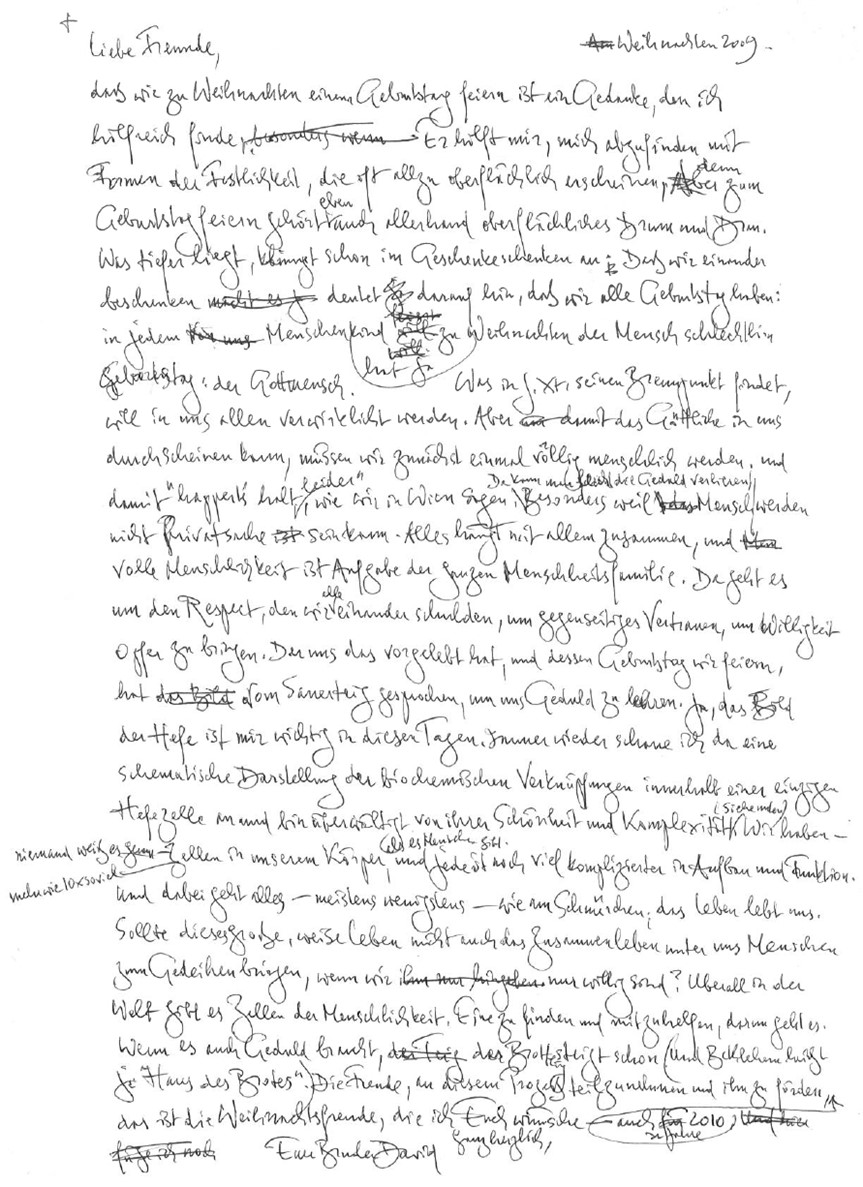 +
Liebe Freunde, Am Weihnachten 2009.
dass wir zu Weihnachten einem Geburtstag feiern ist ein Gedanke, den ich
hilfreich finde, besonders wenn Er hilft mir, mich abzufinden mit
Formen der Festlichkeit, die oft allzu oberflächlich erscheinen, Aber denn zum
Geburtstagfeiern gehört eben auch allerhand oberflächliches Drum und Dran.
Was tiefer liegt, klingt schon im Geschenkeschenken an: Dass wir einander
beschenken macht es ja deutet ja darauf hin, dass wir alle Geburtstag haben:
in jedem Menschenkind hat ja zu Weihnachten der Mensch schlechthin
Geburtstag: der Gottmensch. Was in J. Xt. seinen Brennpunkt findet,
will in uns allen verwirklicht werden. Aber damit das Göttliche in uns
durchscheinen kann, müssen wir zunächst einmal völlig menschlich werden. und
damit "happerts halt leider", wie wir in Wien sagen. Da kann man leicht die Geduld verlieren, Besonders weil Menschwerden
nicht Privatsache ist sein kann. Alles hängt mit allem zusammen, und
volle Menschlichkeit ist Aufgabe der ganzen Menschheitsfamilie. Da geht es
um den Respect, den wir alle einander schulden, um gegenseitiges Vertrauen, um Willigkeit
Opfer zu bringen. Der uns das vorgelebt hat, und dessen Geburtstag wir feiern,
hat das Bild vom Sauerteig gesprochen, um uns Geduld zu lehren. Ja, das Bild
der Hefe ist mir wichtig in diesen Tagen. Immer wieder schaue ich da eine
schematische Darstellung der biochemischen Verknüpfungen innerhalb einer einzigen
Hefezelle an und bin überwältigt von ihrer Schönheit und Komplexität. (Siehe unten) Wir haben –
niemand weiß es genau – Zellen in unserem Körper, und jede ist noch viel komplizierter in Aufbau und Funktion.
mehr wie 10x soviel als es Menschen gibt.
und dabei geht alles – meistens wenigstens – wie am Schnürchen; das Leben lebt uns.
Sollte dieses große, weise Leben nicht auch das Zusammenleben unter uns Menschen
zum Gedeihen bringen, wenn wir ihm nur hingeben nur willig sind? Überall in der
Welt gibt es Zellen der Menschlichkeit. Eine zu finden und mitzuhelfen, darum geht es.
Wenn es auch Geduld braucht, der Teig das Brot steigt schon (und Bethlehem heißt
ja "Haus des Brotes".) Die Freude, an diesem Prozess teilzunehmen und ihn zu fördern,
das ist die Weihnachtsfreude, die ich Euch wünsche – auch für 2010, Und hier
im Jahre
füge ich noch ganz herzlich,
Euer Bruder David